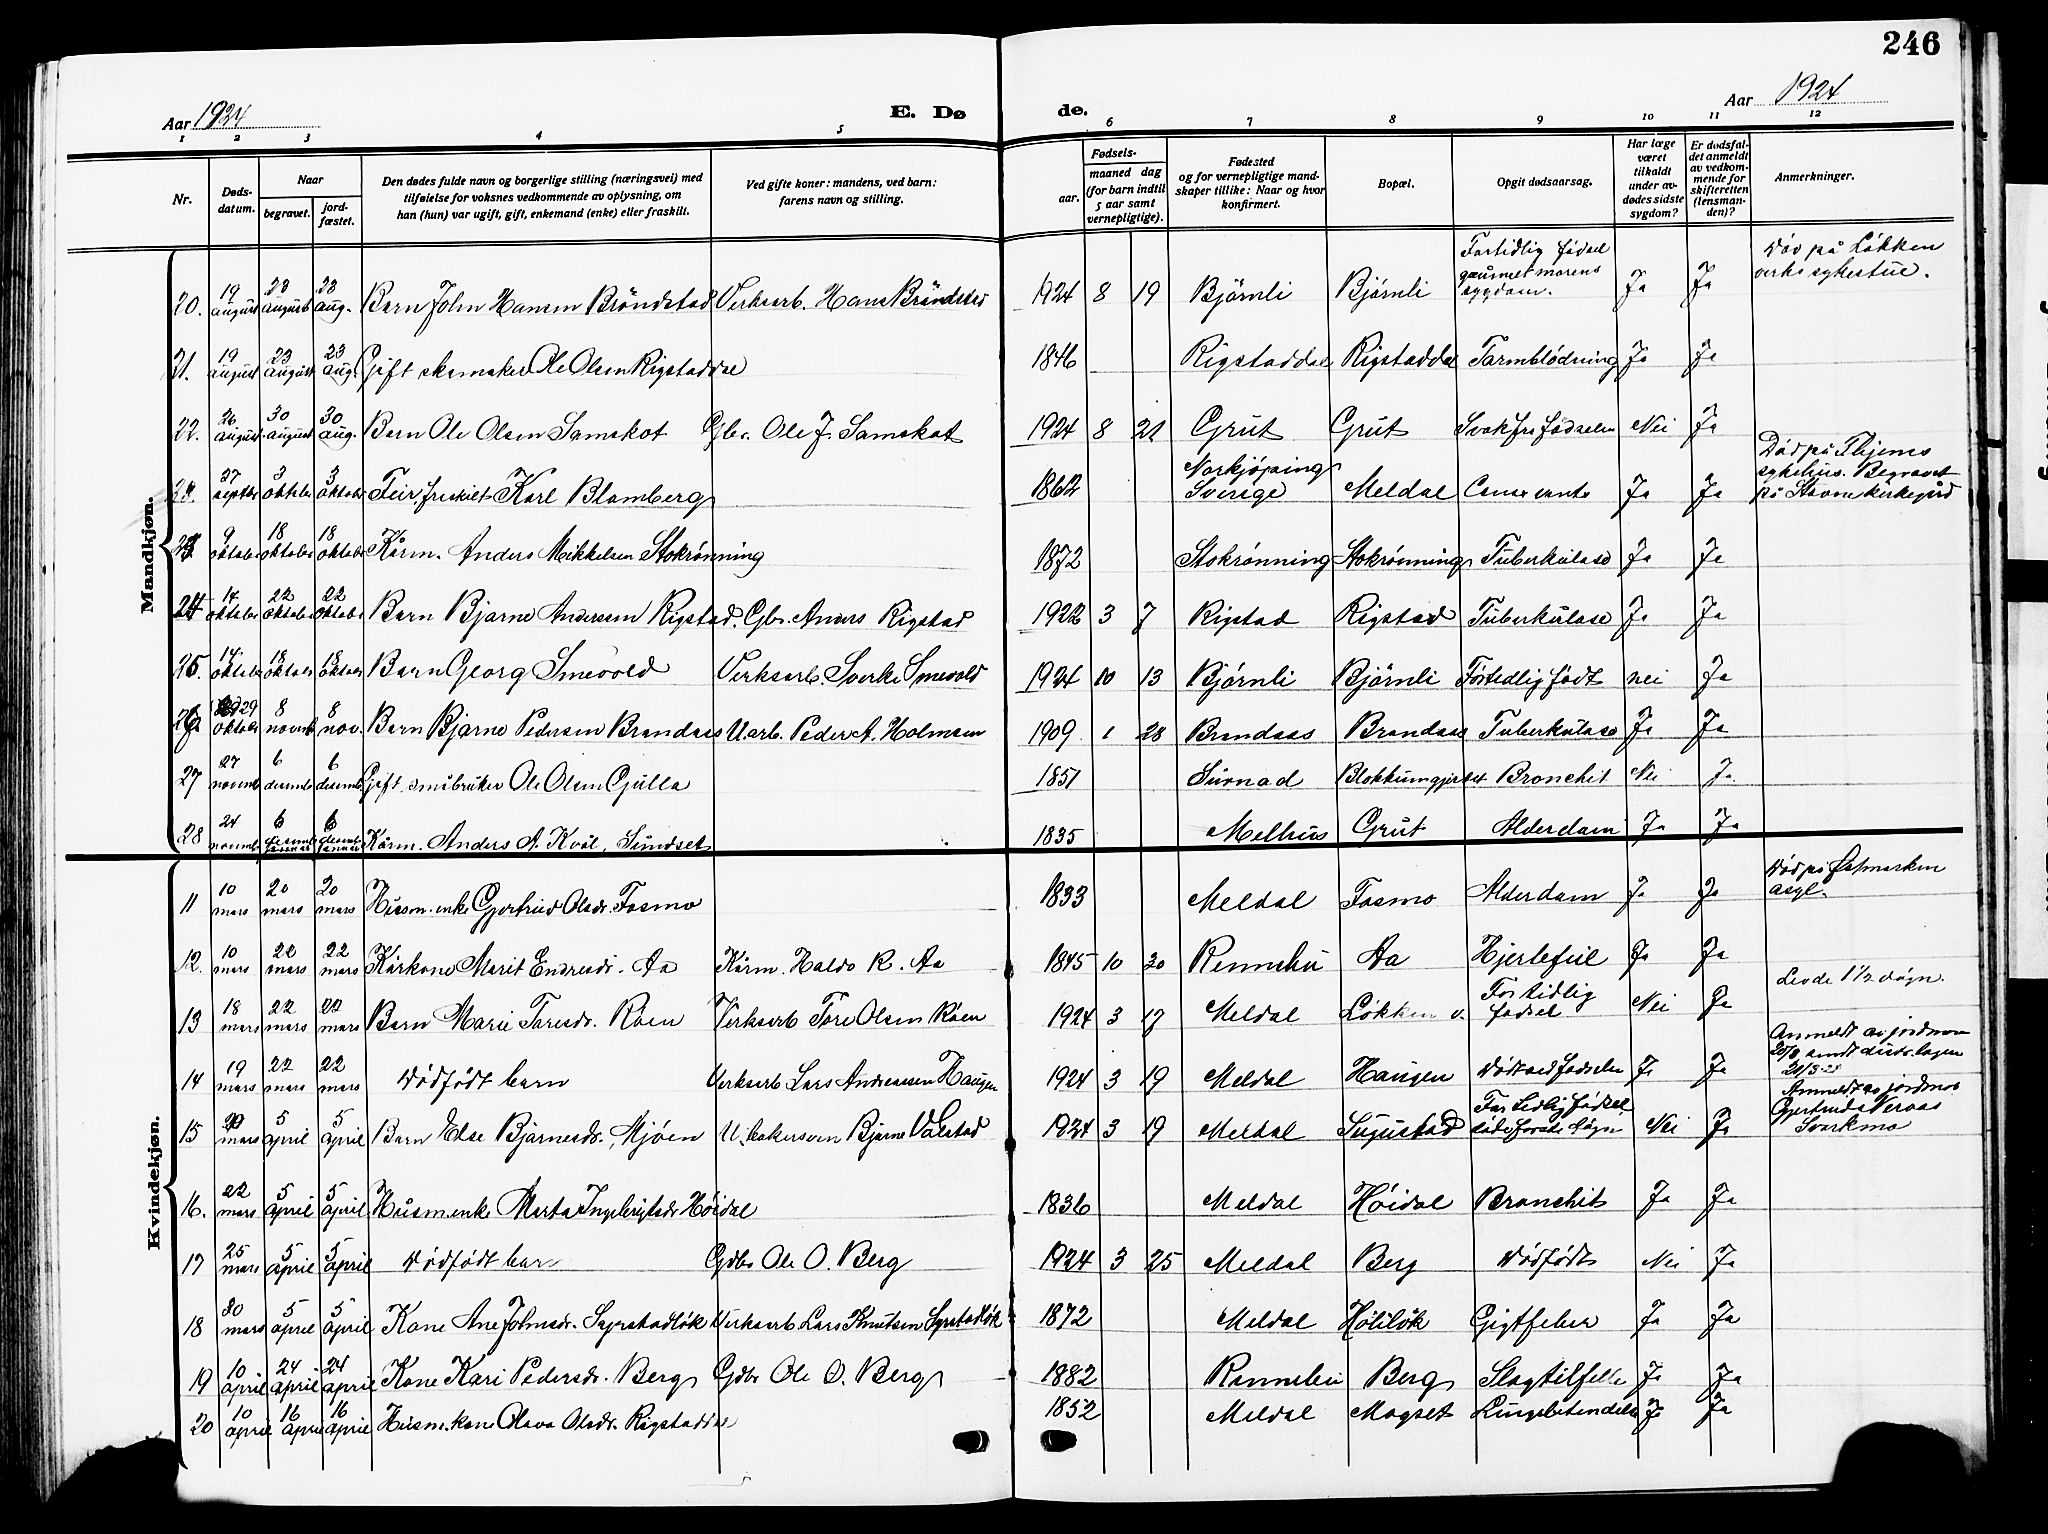 246
Aar 1924
E. Dø
de.
Aar 1924
1 2 3 4 5 6 7 8 9 10 11 12
Nr.
Døds-
datum.
Naar
begravet.
jord-
fæstet.
Den dødes fulde navn og borgerlige stilling (næringsvei) med
tilføielse for voksnes vedkommende av oplysning, om
han (hun) var ugift, gift, enkemand (enke) eller fraskilt.
Ved gifte koner: mandens, ved barn:
farens navn og stilling.
Fødsels-
aar.
maaned dag
(for barn indtil
5 aar samt
vernepligtige).
Fødested
og for vernepligtige mand-
skaper tillike: Naar og hvor
konfirmert.
Bopæl.
Opgit dødsaarsag.
Har læge
været
tilkaldt
under av-
dødes sidste
sygdom?
Er dødsfal-
det anmeldt
av vedkom-
mende for
skifteretten
(lensman-
den)?
Anmerkninger.
Mandkjøn.
20. 19 august 23 august 23 aug. Barn John Hansen Bröndstad Verksarb. Hans Bröndstad 1924 8 19 Björnli Björnli Fortidlig födsel grunnet morens sygdom. Ja Ja Död på Lökken verks sykestue.
21. 19 august 23 august 23 aug. Gift skomaker Ole Olsen Rigstaddal 1846 Rigstaddal Rigstaddal Tarmblödning Ja Ja
22. 26 august 30 august 30 aug. Barn Ole Olsen Samskot Gbr. Ole J. Samskot 1924 8 21 Grut Grut Svak fra födselen Nei Ja
23. 27 septbr 3 oktober 3 oktober Feier fraskilt Karl Blomberg 1862 Norkjöping Sverige Meldal Ja Ja Död på sykehus. Begravet på Stavne kirkegård
9 oktober 18 oktober 18 oktober Kårm. Anders Mikkelsen Stokrönning 1872 Stokrönning Stokrönning Tuberkulose Ja Ja
24 14 oktober 22 oktober 22 oktober Barn Bjarne Andersen Rigstad. Gbr. Anders Rigstad 1922 3 7 Rigstad Rigstad Tuberkulose Ja Ja
25 14 oktober 18 oktober 18 oktober Barn Georg Smevold Verksarb. Sverke Smevold 1924 10 13 Björnli Björnli Fortidlig födt nei Ja
26 29 oktober 8 novemb 8 nov. Barn Bjarne Pedersen Brandaas U.arb. Peder A. Holmsen 1909 1 28 Brandaas Brandaas Tuberkulose Ja Ja
27 27 novemb 6 desemb 6 desemb Gift småbruker Ole Olsen Gjulla 1851 Surnad Blokkumgjerdet Bronchit Nei Ja.
28 24 novemb 6 desemb 6 desemb Kårm. Anders A. Kvål, Sundset 1835 Melhus Grut Alderdom Ja Ja
Kvindekjøn.
11 10 mars 20 mars 20 mars Husm.enke Gjertrud Olsdr. Fosmo 1833 Meldal Fosmo Alderdom Ja Ja Död på Östmarken asyl.
12. 10 mars 22 mars 22 mars Kårkone Marit Endresdr. Aa Kårm. Haldo R. Aa 1845 10 20 Rennebu Aa Hjertefeil Ja Ja
13 18 mars 22 mars 22 mars Barn Marie Toresdr. Roen Verksarb Tore Olsen Roen 1924 3 17 Meldal Lökken v. For tidlig fødsel Nei Ja Levde 1 1/2 døgn.
14 19 mars 22 mars 22 mars Dödfödt barn Verksarb Lars Andreassen Haugen 1924 3 19 Meldal Haugen Död ved fødselen Ja Ja Anmeldt av jordmor
15 29 mars 5 april 5 april Barn Else Bjarnesdr. Mjøen Bjarne Volstad 1924 3 19 Meldal For tidlig födsel Nei Ja Anmeldt av jordmor Gjertruda Svorkmo
16. 22 mars 5 april 5 april Husm.enke Marta Ingebrigtsdr Höidal 1836 Meldal Höidal Bronchit Ja Ja
17 25 mars 5 april 5 april Dödfödt barn Gdbr Ole O. Berg 1924 3 25 Meldal Berg Dödfödt Nei Ja
18 30 mars 5 april 5 april Kone Ane Johnsdr. Syrstadløk Verksarb Lars Knutsen Syrstadløk 1872 Meldal Gigtfeber Ja Ja
19 10 april 24 april 24 april Kone Kari Pedersdr. Berg Gdbr Ole O. Berg 1882 Rennebu Berg Slagtilfelle Ja Ja
20 10 april 16 april 16 april Husm.kone Olava Olsdr. Rigstaddal 1852 Meldal Mogset Lungebetendelse Ja Ja